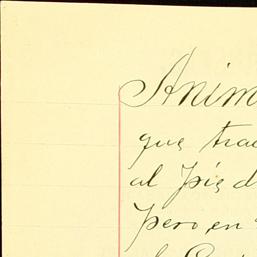 Anim
que trae
al pie d
pero en